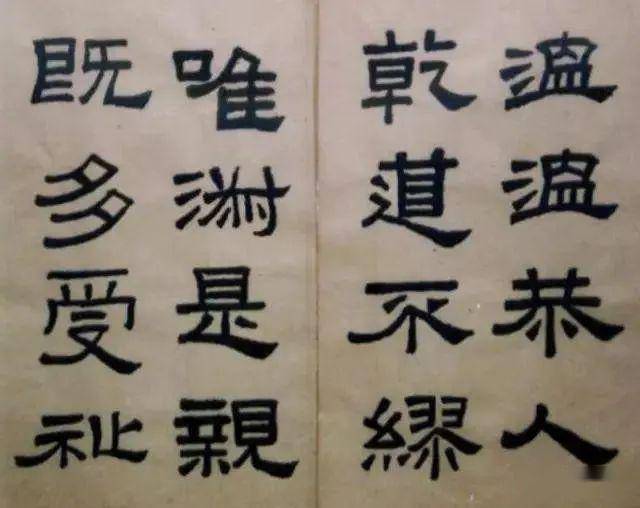 溫溫恭人
乾道不繆
唯淑是親
既多受祉